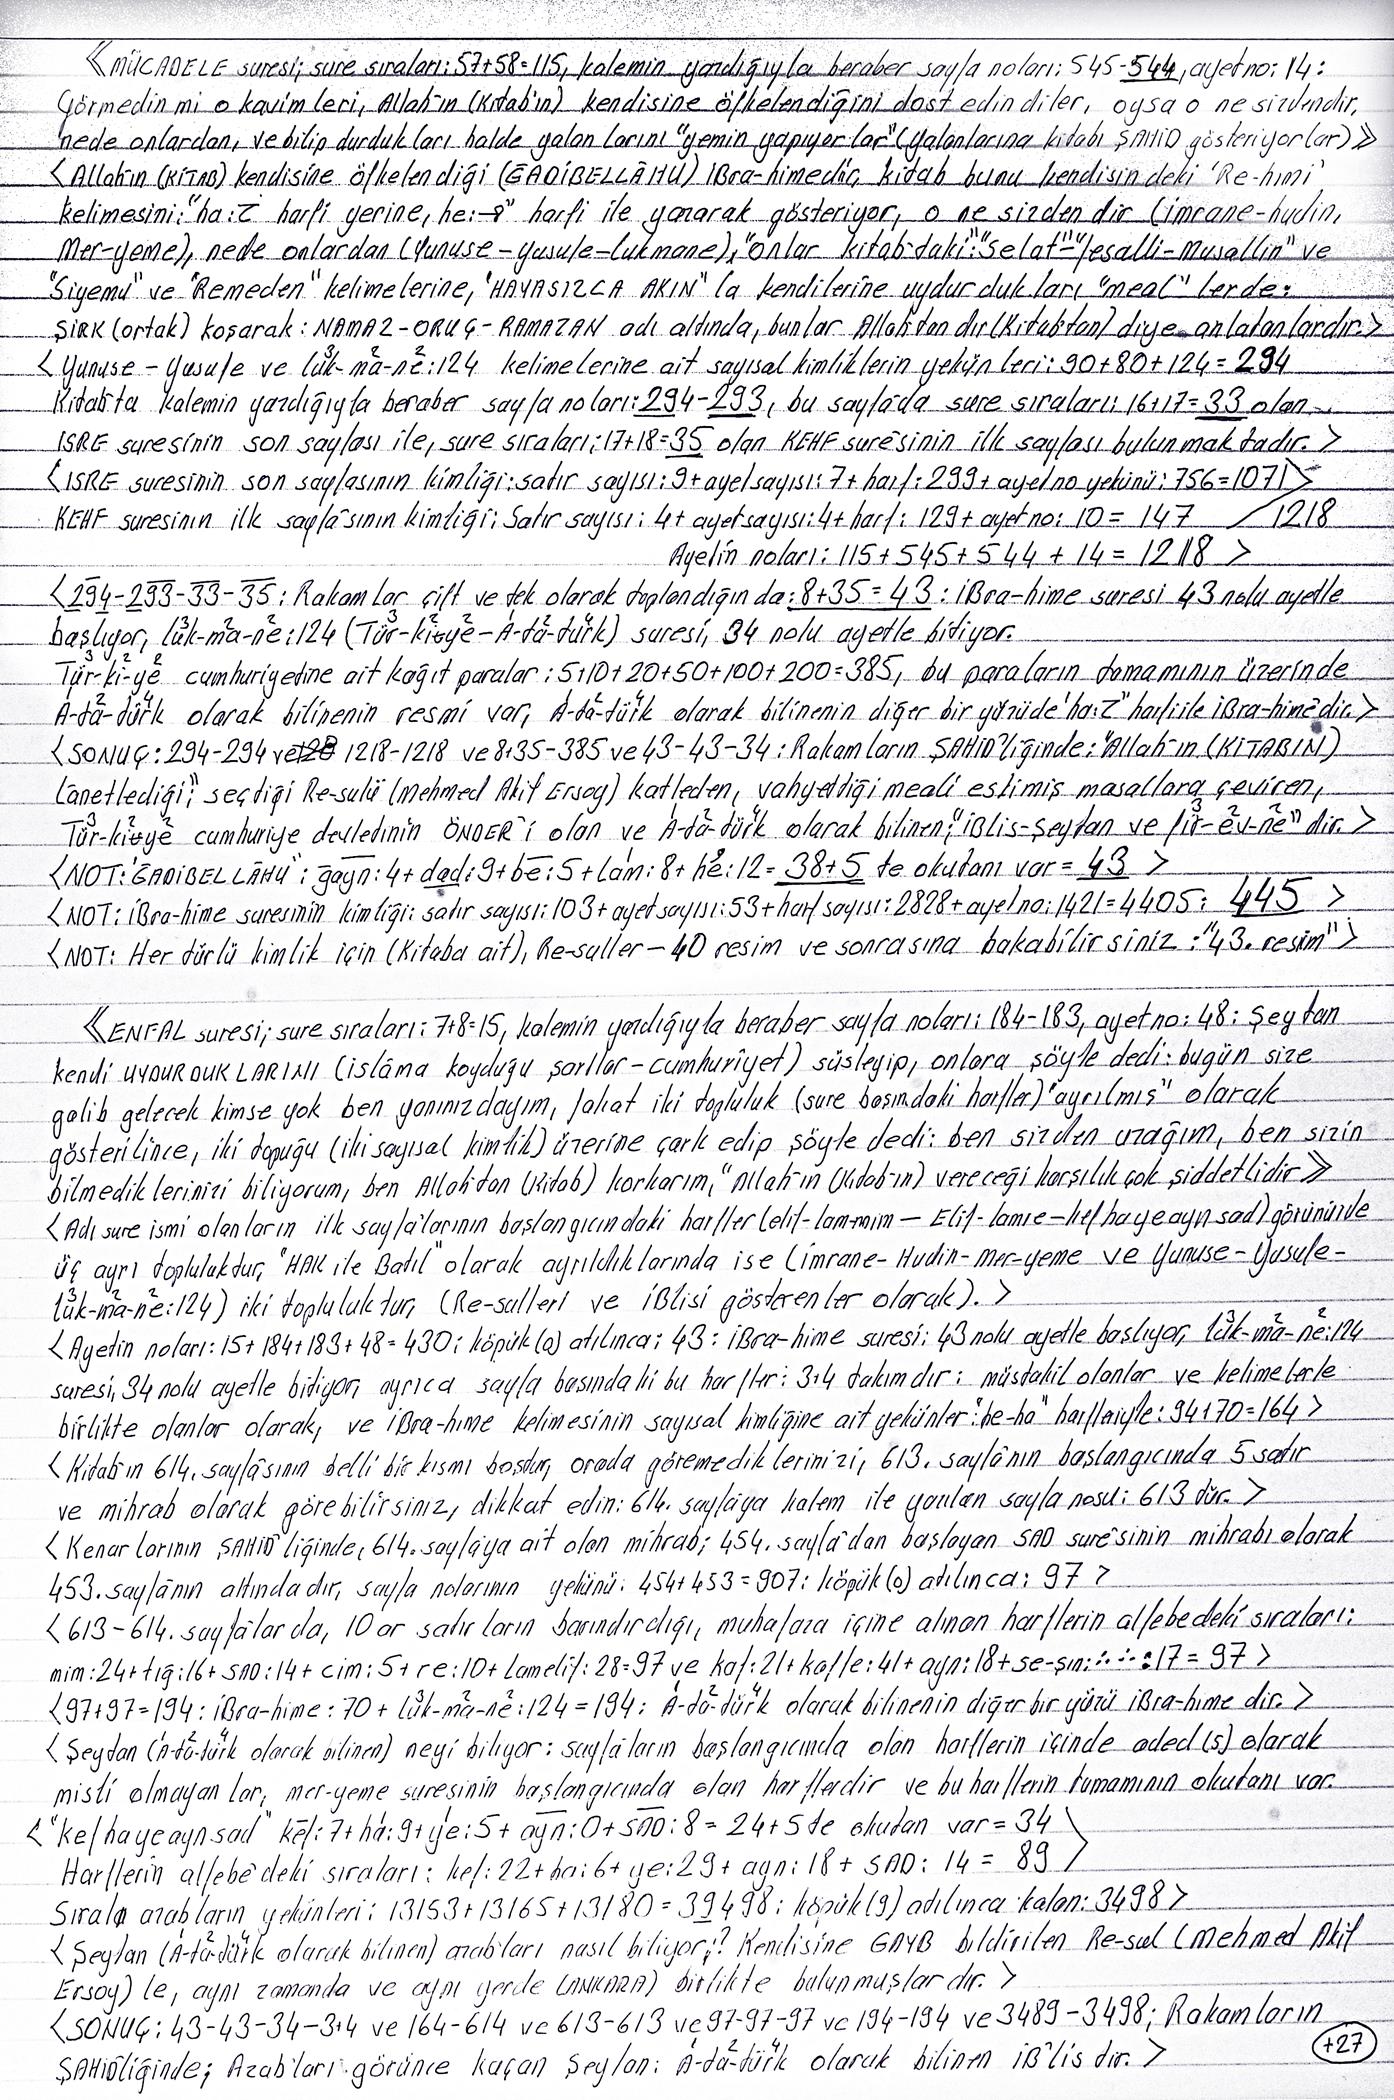 《MÜCADELE suresi; sure sıraları: 57+58=115, kalemin yazdığıyla beraber sayfa noları: 545-544, ayet no: 14:
Görmedin mi o kavimleri, Allah'ın (Kitab'ın) kendisine öfkelendiğini dost edindiler, oysa o ne sizdendir,
nede onlardan, ve bilip durdukları halde yalanlarını "yemin yapıyorlar" (yalanlarına kitabı ŞAHİD gösteriyorlar)》
<Allah'ın (KİTAB) kendisine öfkelendiği (ĞADİBELLÂHU) İBra-himedir, kitab bunu kendisindeki 'Re-himi'
kelimesini: "ha: ح harfi yerine, he: ه" harfi ile yazarak gösteriyor, o ne sizdendir (İmrane-hudin,
Mer-yeme), nede onlardan (Yunuse-Yusufe-lukmane), "onlar kitab'daki": "Selat"-"Yesalli-Musallin" ve
"Siyemu" ve "Remeden" kelimelerine, "HAYASIZCA AKIN" la kendilerine uydurdukları "meal" lerde:
ŞİRK (ortak) koşarak: NAMAZ-ORUÇ-RAMAZAN adı altında, bunlar Allah'tandır (Kitabtan) diye anlatanlardır.>
<Yunuse-Yusufe ve lük³-ma²-ne²:124 kelimelerine ait sayısal kimliklerin yekünleri: 90+80+124=294
Kitab'ta kalemin yazdığıyla beraber sayfa noları: 294-293, bu sayfada sure sıraları: 16+17=33 olan
ISRE suresinin son sayfası ile, sure sıraları: 17+18=35 olan KEHF suresinin ilk sayfası bulunmaktadır.>
<ISRE suresinin son sayfasının kimliği: satır sayısı: 9+ayet sayısı: 7+harf: 299+ayet no yekünü: 756=1071>
KEHF suresinin ilk sayfasının kimliği: Satır sayısı: 4+ayet sayısı: 4+harf: 129+ayet no: 10=147 / 1218
Ayetin noları: 115+545+544+14=1218 >
<294-293-33-35: Rakamlar çift ve tek olarak toplandığında: 8+35=43: İBra-hime suresi 43 nolu ayetle
başlıyor, lük³-ma²-ne²:124 (Tür³-ki²ye²-A-ta²-türk⁴) suresi, 34 nolu ayetle bitiyor.
Tür³-ki²-ye² cumhuriyetine ait kağıt paralar: 5+10+20+50+100+200=385, bu paraların tamamının üzerinde
A-ta²-türk⁴ olarak bilinenin resmi var, A-ta²-türk⁴ olarak bilinenin diğer bir yüzüde 'ha: ح' harfi ile İBra-himedir.>
<SONUÇ: 294-294 ve 1218-1218 ve 8+35-385 ve 43-43-34: Rakamların ŞAHİD'liğinde: "Allah'ın (KİTABIN)
lanetlediği", seçtiği Re-sulü (Mehmed Akif Ersoy) katleden, vahyettiği meali eskimiş masallara çeviren,
Tür³-ki²ye² cumhuriye devletinin ÖNDER'i olan ve A-ta²-türk⁴ olarak bilinen; "İBlis-Şeytan ve fir³-ev²-ne²" dir.>
<NOT: 'ĞADİBELLÂHU': ğayn: 4+dad: 9+be: 5+lam: 8+he: 12=38+5 te okutanı var=43 >
<NOT: İBra-hime suresinin kimliği: satır sayısı: 103+ayet sayısı: 53+harf sayısı: 2828+ayet no: 1421=4405: 445 >
<NOT: Her türlü kimlik için (Kitaba ait), Re-suller-40 resim ve sonrasına bakabilirsiniz: "43. resim">
《ENFAL suresi; sure sıraları: 7+8=15, kalemin yazdığıyla beraber sayfa noları: 184-183, ayet no: 48: Şeytan
kendi UYDURDUKLARINI (islâma koyduğu şartlar-cumhuriyet) süsleyip, onlara şöyle dedi: bugün size
galib gelecek kimse yok ben yanınızdayım, fakat iki topluluk (sure başındaki harfler) "ayrılmış" olarak
gösterilince, iki topuğu (iki sayısal kimlik) üzerine çark edip şöyle dedi: ben sizden uzağım, ben sizin
bilmediklerinizi biliyorum, ben Allah'tan (Kitab) korkarım, "Allah'ın (Kitab-ın) vereceği karşılık çok şiddetlidir》
<Adı sure ismi olanların ilk sayfa'larının başlangıcındaki harfler (elif-lam-mim-Elif-lamre-kef ha ye ayn sad) görünürde
üç ayrı topluluktur, "HAK ile Batıl" olarak ayrıldıklarında ise (İmrane-Hudin-Mer-yeme ve Yunuse-Yusufe-
lük³-ma²-ne²:124) iki topluluktur, (Re-sulleri ve İBlisi gösterenler olarak).>
<Ayetin noları: 15+184+183+48=430: köpük (0) atılınca: 43: İBra-hime suresi: 43 nolu ayetle başlıyor, lük³-ma²-ne²:124
suresi, 34 nolu ayetle bitiyor, ayrıca sayfa basındaki bu harfler: 3+4 takımdır: müstakil olanlar ve kelimelerle
birlikte olanlar olarak, ve İBra-hime kelimesinin sayısal kimliğine ait yekünler "he-ha" harfleriyle: 94+70=164>
<Kitab'ın 614. sayfâsının belli bir kısmı boştur, orada göremediklerinizi, 613. sayfânın başlangıcında 5 satır
ve mihrab olarak görebilirsiniz, dikkat edin: 614. sayfaya kalem ile yazılan sayfa nosu: 613 tür.>
<Kenarlarının ŞAHİD'liğinde, 614. sayfaya ait olan mihrab; 454. sayfa'dan başlayan SAD sure'sinin mihrabı olarak
453. sayfânın altındadır, sayfa nolarının yekünü: 454+453=907: köpük (0) atılınca: 97 >
<613-614. sayfâlarda, 10 ar satırların barındırdığı, muhafaza içine alınan harflerin alfebedeki sıraları:
mim: 24+tığ: 16+SAD: 14+cim: 5+re: 10+Lamelif: 28=97 ve kaf: 21+kaf fe: 41+ayn: 18+se-şın: ∴ ∴: 17=97>
<97+97=194: İBra-hime: 70+lük³-ma²-ne²:124=194: A-ta²-türk⁴ olarak bilinenin diğer bir yüzü İBra-hime dir.>
<Şeytan (A-ta²-türk⁴ olarak bilinen) neyi biliyor: sayfaların başlangıcında olan harflerin içinde aded (5) olarak
misli olmayanlar, mer-yeme suresinin başlangıcında olan harflerdir ve bu harflerin tamamının okutanı var.
<"kef ha ye ayn sad" kef: 7+ha: 9+ye: 5+ayn: 0+SAD: 8=24+5 te okutan var=34
Harflerin alfebe'deki sıraları: kef: 22+ha: 6+ye: 29+ayn: 18+SAD: 14=89 >
Sırala azabların yekünleri: 13153+13165+13180=39498: köpük (9) atılınca kalan: 3498>
<Şeytan (A-ta²-türk⁴ olarak bilinen) azab'ları nasıl biliyor;? Kendisine GAYB bildirilen Re-sul (Mehmed Akif
Ersoy) le, aynı zamanda ve aynı yerde (ANKARA) birlikte bulunmuşlardır.>
<SONUÇ: 43-43-34-3+4 ve 164-614 ve 613-613 ve 97-97-97 ve 194-194 ve 3489-3498; Rakamların
ŞAHİD'liğinde; Azab'ları görünce kaçan Şeytan: A-ta²-türk⁴ olarak bilinen İB'lis dir.>
+27